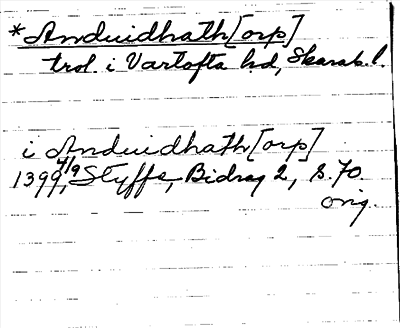 *Anduidhath[orp]
trol. i Vartofta hd, Skarab. l.
i Anduidhath[orp]
1399 4/9, Styffe, Bidrag 2, s. 70.
orig.